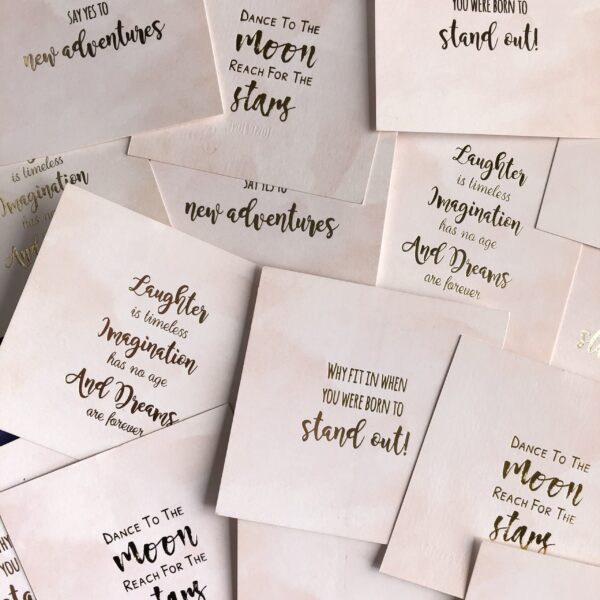 SAY YES TO
new adventures
DANCE TO THE
moon
REACH FOR THE
stars
YOU WERE BORN TO
stand out!
Laughter
is timeless
Imagination
has no age
And
SAY YES TO
new adventures
Laughter
is timeless
Imagination
has no age
And Dreams
are forever
Laughter
is timeless
Imagination
has no age
And Dreams
are forever
WHY FIT IN WHEN
YOU WERE BORN TO
stand out!
DANCE TO THE
moon
REACH FOR THE
stars
DANCE TO THE
moon
REACH FOR THE
stars
WHY
YOU